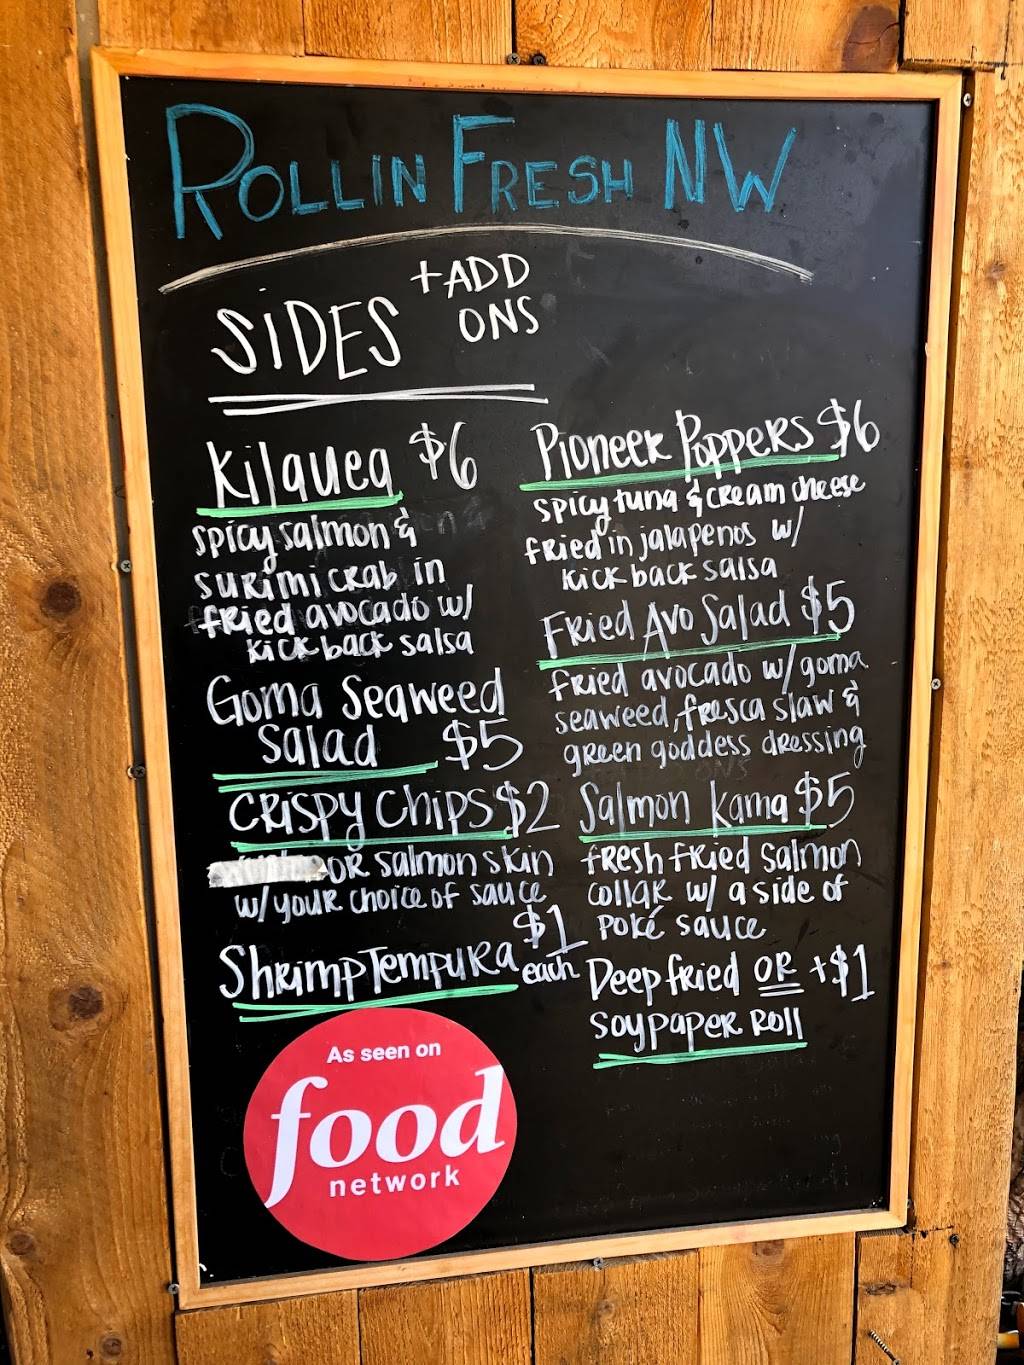 ROLLIN FRESH NW
SiDES + ADD
ONS
Kilauea $6
spicy salmon &
surimi crab in
fried avocado w/
kick back salsa
Goma Seaweed
Salad $5
Crispy Chips $2
OR salmon skin
w/ your choice of sauce
Shrimp Tempura $1
each
Pioneer Poppers $6
spicy tuna & cream cheese
fried in jalapenos w/
kick back salsa
Fried Avo Salad $5
fried avocado w/ goma
seaweed, fresca slaw &
green goddess dressing
Salmon Kama $5
fresh fried salmon
collar w/ a side of
poké sauce
Deep fried OR +$1
soy paper roll
As seen on
food
network